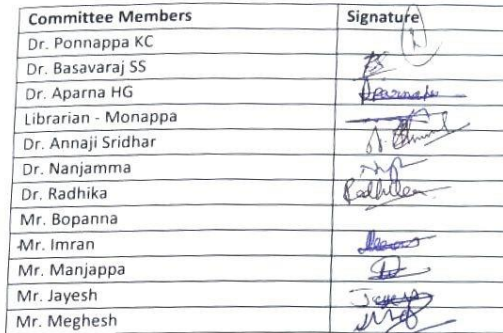 Committee Members Signature
Dr. Ponnappa KC
Dr. Basavaraj SS
Dr. Aparna HG Aparna
Librarian - Monappa
Dr. Annaji Sridhar
Dr. Nanjamma
Dr. Radhika Radhika
Mr. Bopanna
Mr. Imran
Mr. Manjappa
Mr. Jayesh Jayesh
Mr. Meghesh